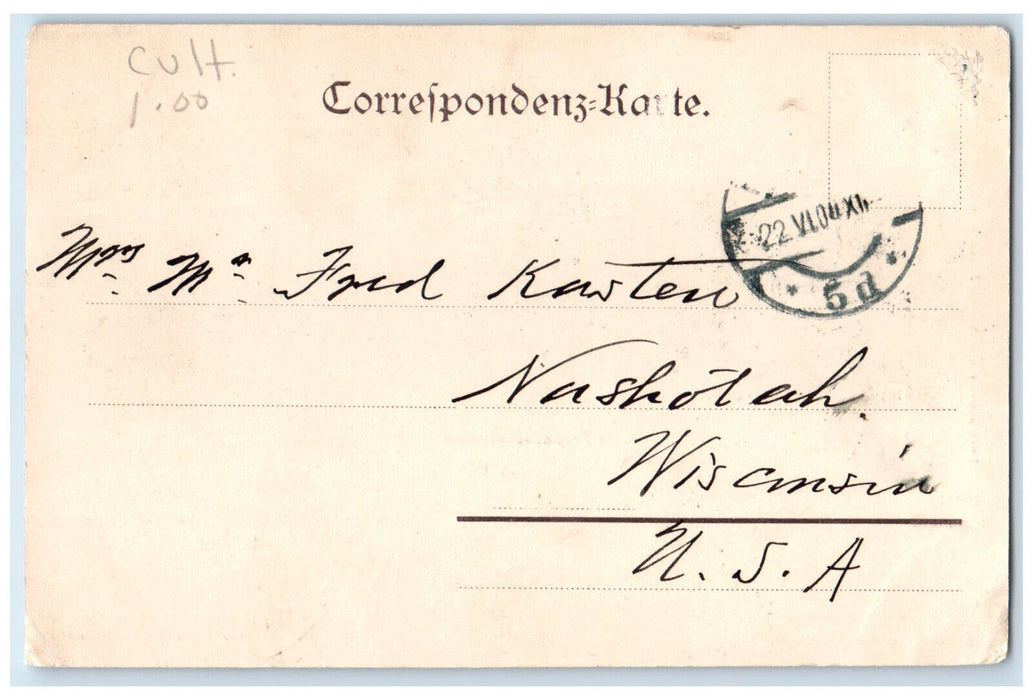 Cult.
1.00
Correspondenz-Karte.
22 VI 00 XII
5 d
Mrs. Mr. Fred Karsten
Nashotah.
Wisconsin
U. S. A